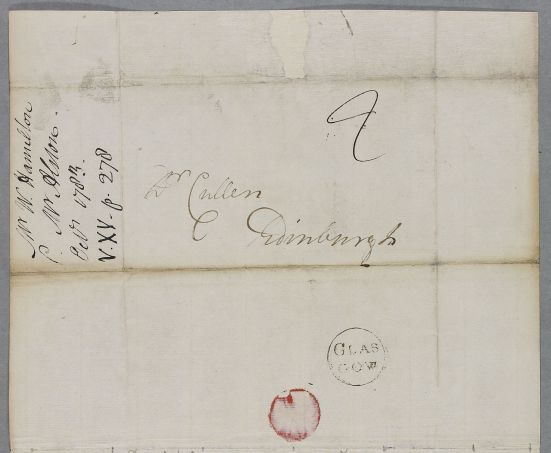 Mr W. Hamilton
C. Mr Alston.
Octr 1783.
V. XV. p. 278
Dr Cullen
Edinburgh
GLAS
GOW